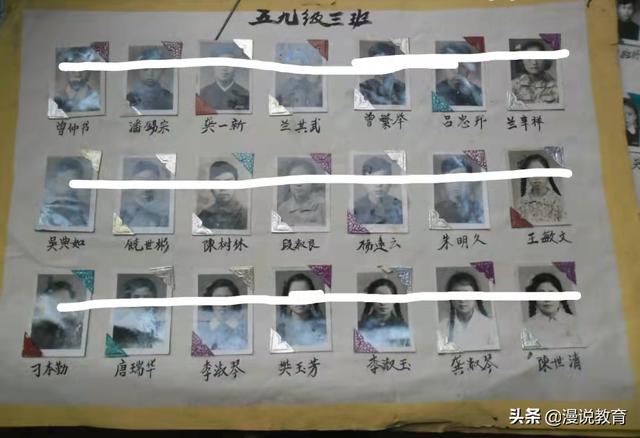 五九级三班
曾仲书 潘锡宗 吴一新 兰其武 曾繁华 吕忠升 兰辛祥
吴典如 饶世彬 陈树林 段叔良 杨连云 朱明久 王敏文
刁本勤 唐瑞华 李淑琴 樊玉芳 李淑玉 龚淑琴 陈世清
头条 @漫说教育